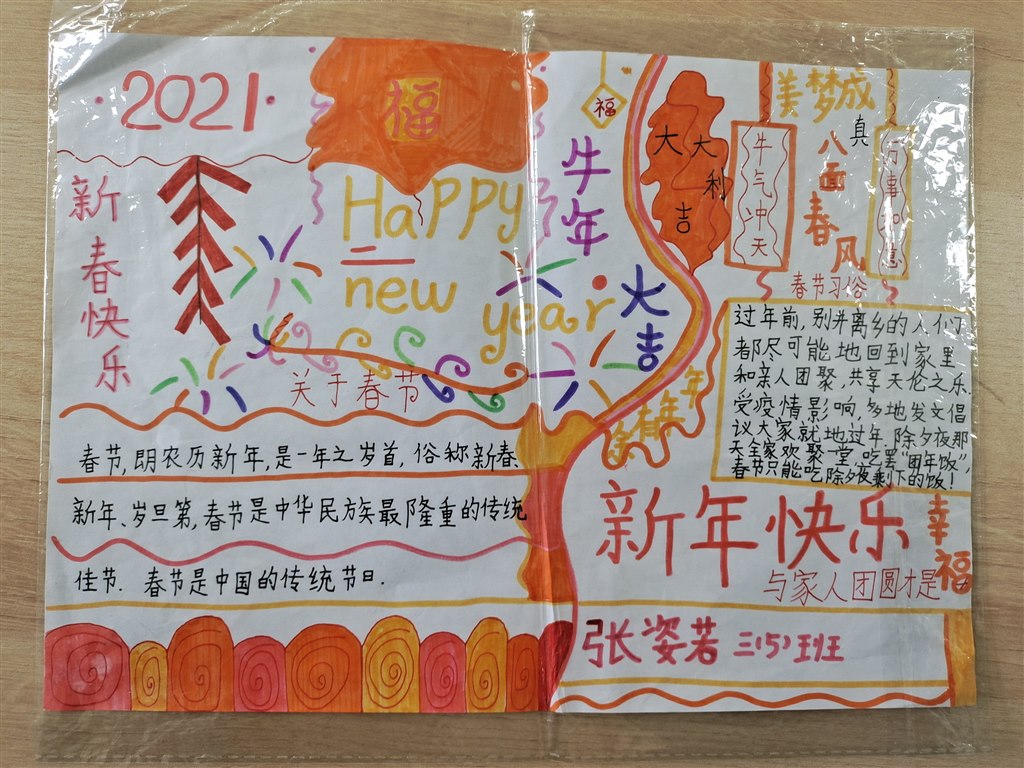 2021
福
新春快乐
Happy
new
year
关于春节
春节,即农历新年,是一年之岁首,俗称新春、
新年、岁旦第,春节是中华民族最隆重的传统
佳节.春节是中国的传统节日.
福
牛年
大吉
大吉
大利
牛气冲天
美梦成真
八面春风
万事如意
春节习俗
过年前,别井离乡的人们
都尽可能地回到家里
和亲人团聚,共享天伦之乐.
受疫情影响,多地发文倡
议大家就地过年,除夕夜那
天全家欢聚一堂,吃罢“团年饭”,
春节只能吃除夕夜剩下的饭!
余
有年年
新年快乐
与家人团圆才是
幸福
张姿若 三(5)班